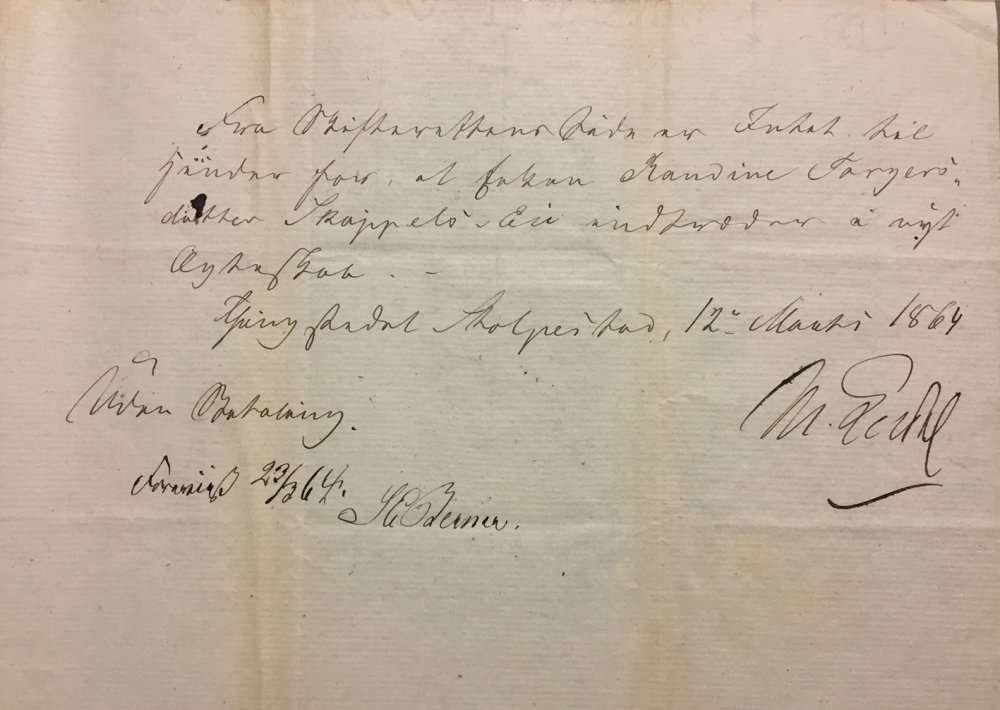 Fra Skifterettens Side er Intet til
Hinder for, at Enken Randine Torgers-
datter Skoppels-Eie indtræder i nyt
Ægteskab. -
Thingstedet Stolpestad, 12te Marts 1864
Uden Betaling.
M.
Forevist 23/3 64.
Berner.